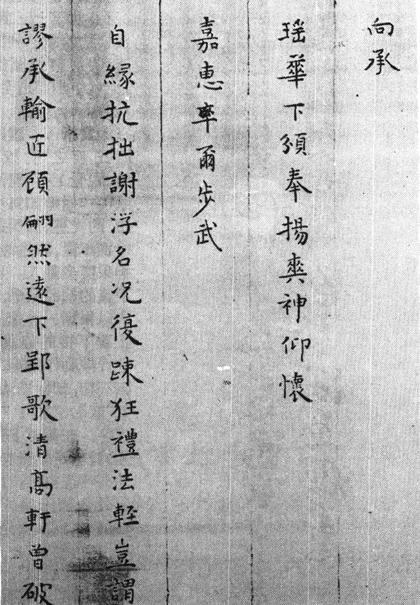 向承
瑶華下頒奉揚爽神仰懷
嘉惠率爾步武
自緣抗拙謝浮名况復踈狂禮法輕豈謂
謬承輸近顾翩然遠下郢歌清高軒曾破